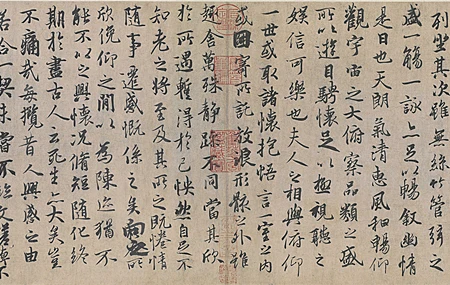 列坐其次雖無絲竹管弦之
盛一觴一詠亦足以暢敘幽情
是日也天朗氣清惠風和暢仰
觀宇宙之大俯察品類之盛
所以遊目騁懷足以極視聽之
娛信可樂也夫人之相與俯仰
一世或取諸懷抱悟言一室之內
或因寄所託放浪形骸之外雖
趣舍萬殊靜躁不同當其欣
於所遇暫得於己快然自足不
知老之將至及其所之既惓情
隨事遷感慨係之矣向之所
欣俛仰之閒以為陳迹猶不
能不以之興懷況脩短隨化終
期於盡古人云死生亦大矣豈
不痛哉每攬昔人興感之由
若合一契未嘗不臨文嗟悼不